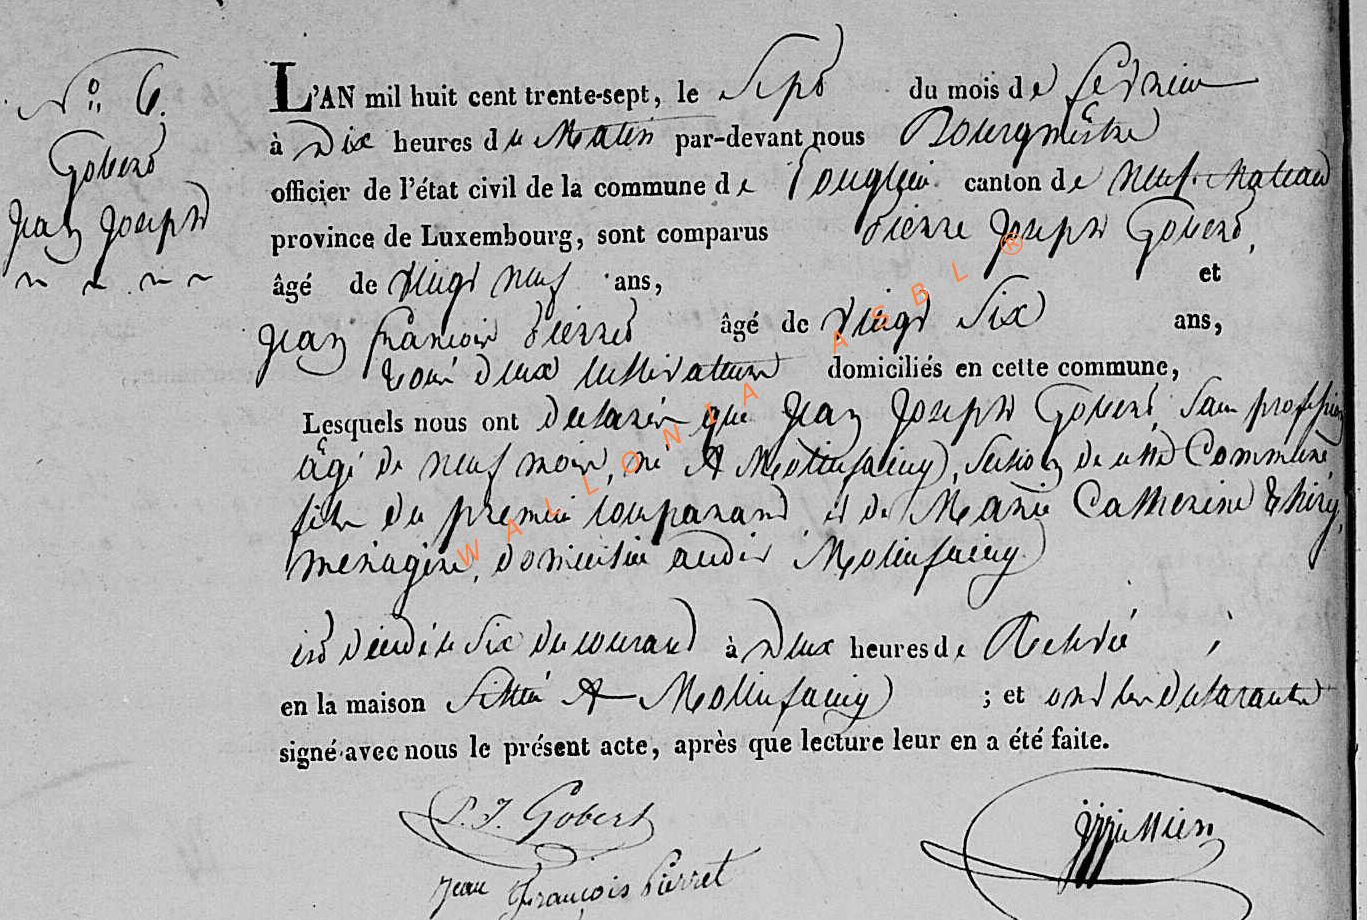 N.º 6.
Gobert
Jean Joseph
L'AN mil huit cent trente-sept, le sept du mois de fevrier
à Dix heures du Matin par-devant nous Bourgmêstre
officier de l'état civil de la commune de Longlier canton de Neufchateau
province de Luxembourg, sont comparus Pierre Joseph Gobert,
âgé de vingt neuf ans, et
Jean françois Pierret âgé de vingt Six ans,
tous deux cultivateurs domiciliés en cette commune,
Lesquels nous ont declarés que Jean Joseph Gobert, Sans profession
âgé de neuf mois, né A Molinfaing, Section de cette Commune,
fils du premier comparant et de Marie Catherine Thiry,
ménagère, domiciliée audit Molinfaing
est décédé le Six du courant à Deux heures de Relevée ;
en la maison Sittué A Molinfaing ; et ont les déclarants
signé avec nous le présent acte, après que lecture leur en a été faite.
P. J. Gobert
Jean François Pierret
WALLONIA ASBL ®